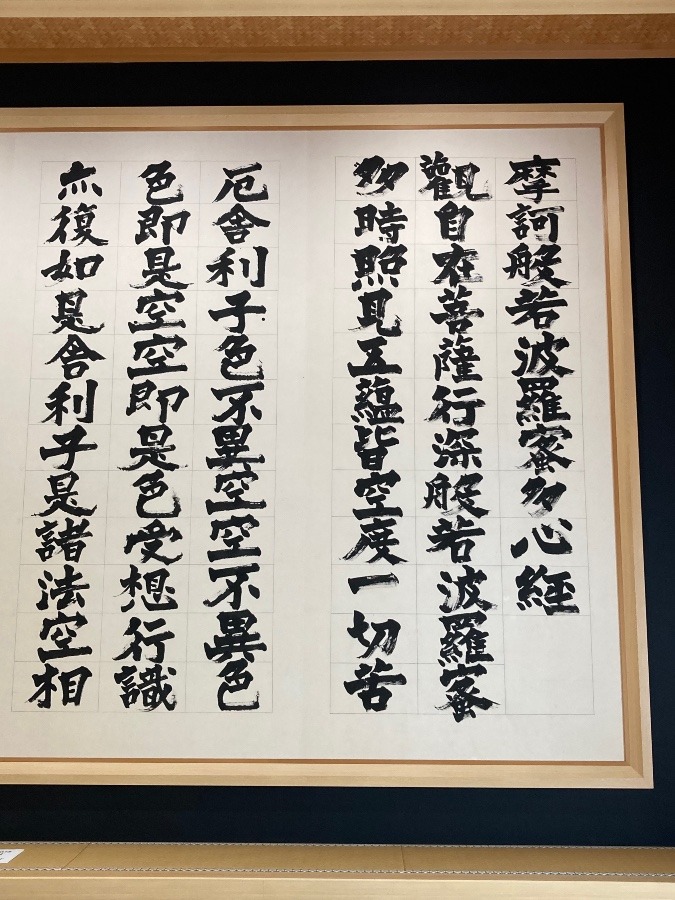 摩訶般若波羅蜜多心経
觀自在菩薩行深般若波羅蜜
多時照見五蘊皆空度一切苦
厄舎利子色不異空空不異色
色即是空空即是色受想行識
亦復如是舎利子是諸法空相